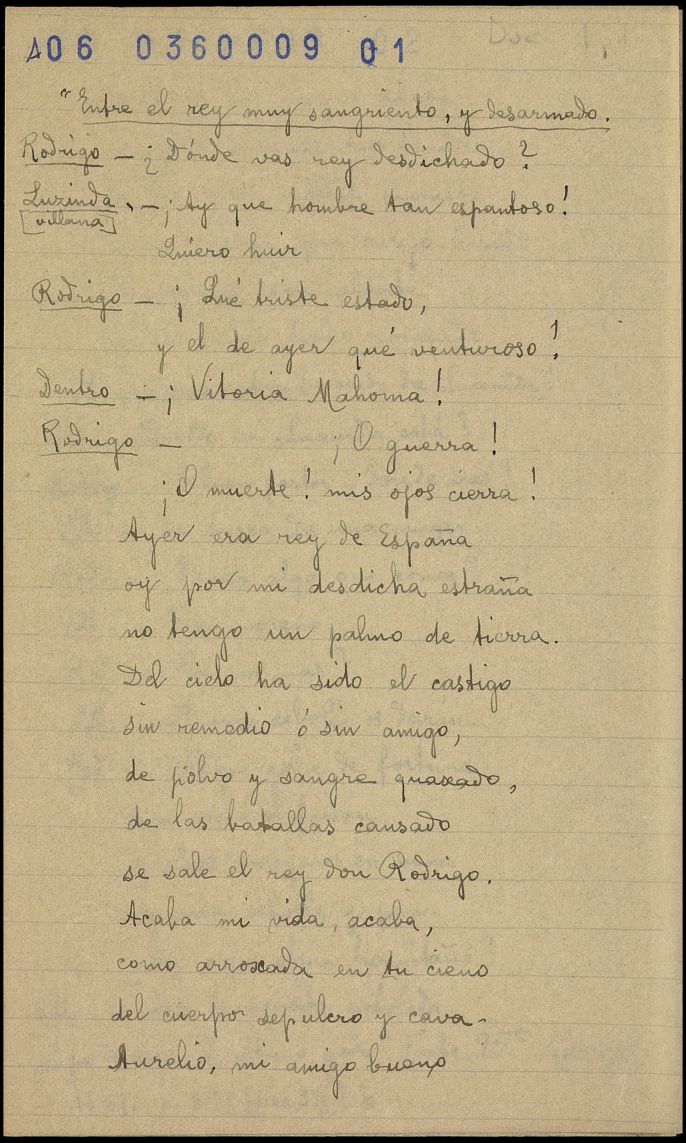 A06 0360009 01
Doc 1.
"Entre el rey muy sangriento, y desarmado.
Rodrigo — ¿Dónde vas rey desdichado?
Luzinda, — ¡Ay que hombre tan espantoso!
[villana]
Quiero huir
Rodrigo — ¡Qué triste estado,
y el de ayer qué venturoso!
Dentro — ¡Vitoria Mahoma!
Rodrigo — ¡O guerra!
¡O muerte! mis ojos cierra!
Ayer era rey de España
oy por mi desdicha estraña
no tengo un palmo de tierra.
Del cielo ha sido el castigo
sin remedio ó sin amigo,
de polvo y sangre quaxado,
de las batallas cansado
se sale el rey don Rodrigo.
Acaba mi vida, acaba,
como arroxada en tu cieno
del cuerpo sepulcro y cava.
Aurelio, mi amigo bueno